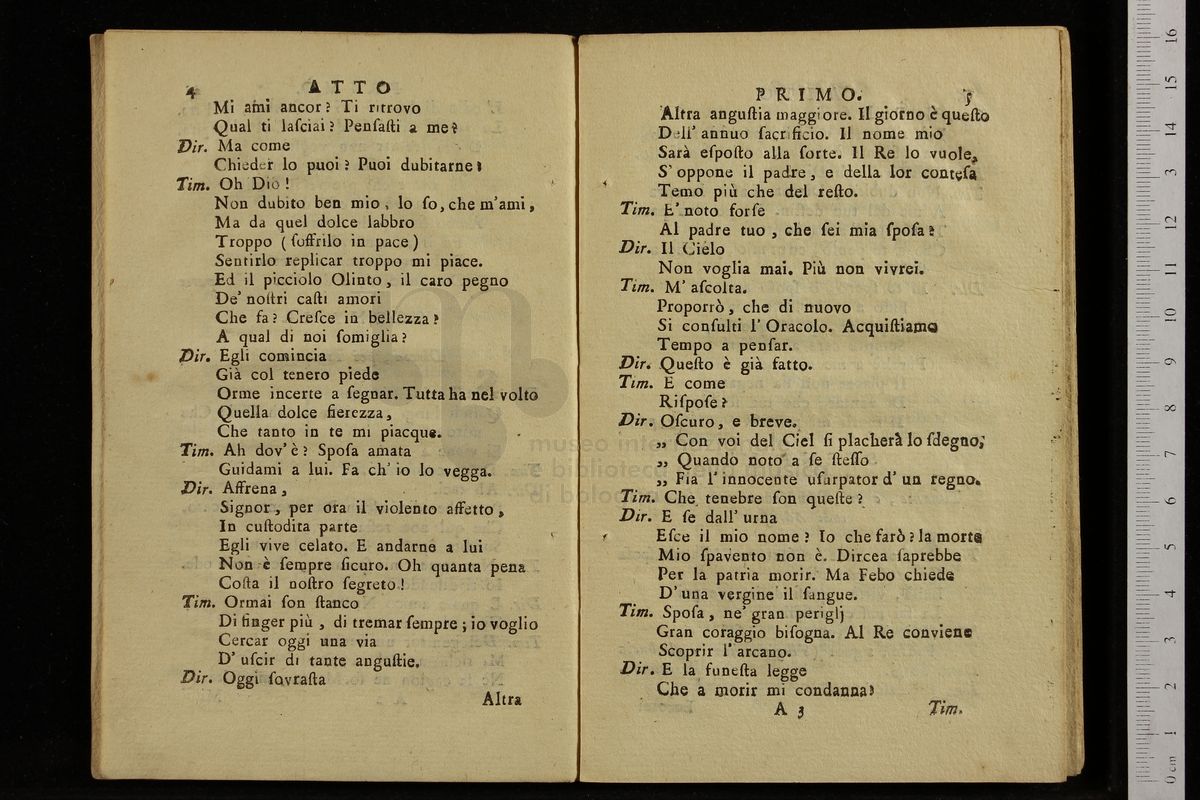 4 ATTO
Mi ami ancor? Ti ritrovo
Qual ti laſciai? Penſaſti a me?
Dir. Ma come
Chieder lo puoi? Puoi dubitarne?
Tim. Oh Dio!
Non dubito ben mio, lo ſo, che m'ami,
Ma da quel dolce labbro
Troppo (ſoffrilo in pace)
Sentirlo replicar troppo mi piace.
Ed il picciolo Olinto, il caro pegno
De' noſtri caſti amori
Che fa? Creſce in bellezza?
A qual di noi ſomiglia?
Dir. Egli comincia
Già col tenero piede
Orme incerte a ſegnar. Tutta ha nel volto
Quella dolce fierezza,
Che tanto in te mi piacque.
Tim. Ah dov'è? Spoſa amata
Guidami a lui. Fa ch'io lo vegga.
Dir. Affrena,
Signor, per ora il violento affetto,
In cuſtodita parte
Egli vive celato. E andarne a lui
Non è ſempre ſicuro. Oh quanta pena
Coſta il noſtro ſegreto!
Tim. Ormai ſon ſtanco
Di finger più, di tremar ſempre; io voglio
Cercar oggi una via
D'uſcir di tante anguſtie.
Dir. Oggi ſovraſta
Altra
PRIMO. 5
Altra anguſtia maggiore. Il giorno è queſto
Dell'annuo ſacrificio. Il nome mio
Sarà eſpoſto alla ſorte. Il Re lo vuole,
S'oppone il padre, e della lor conteſa
Temo più che del reſto.
Tim. E' noto forſe
Al padre tuo, che ſei mia ſpoſa?
Dir. Il Cielo
Non voglia mai. Più non vivrei.
Tim. M'aſcolta.
Proporrò, che di nuovo
Si conſulti l'Oracolo. Acquiſtiamo
Tempo a penſar.
Dir. Queſto è già fatto.
Tim. E come
Riſpoſe?
Dir. Oſcuro, e breve.
„ Con voi del Ciel ſi placherà lo ſdegno,
„ Quando noto a ſe ſteſſo
„ Fia l'innocente uſurpator d'un regno.
Tim. Che tenebre ſon queſte?
Dir. E ſe dall'urna
Eſce il mio nome? Io che farò? la morte
Mio ſpavento non è. Dircea ſaprebbe
Per la patria morir. Ma Febo chiede
D'una vergine il ſangue.
Tim. Spoſa, ne' gran periglj
Gran coraggio biſogna. Al Re conviene
Scoprir l'arcano.
Dir. E la funeſta legge
Che a morir mi condanna?
A 3 Tim.